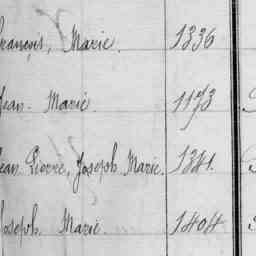 François, Marie. 1336
Jean-Marie. 1173
Jean Pierre, Joseph Marie. 1341.
Joseph Marie. 1404